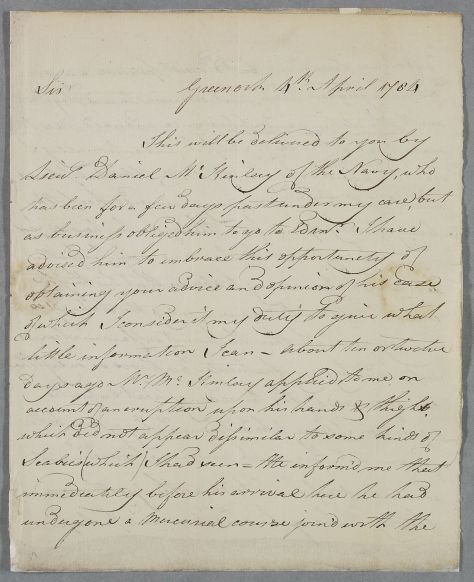 Sir Greenock 4th April 1784
This will be delivered to you by
Lieut Daniel Mc Kinlay of the Navy, who
has been for a few days past under my care, but
as business obliged him to go to Edinr. I have
advised him to embrace this opportunety of
obtaining your advice and opinion of his Case
of which I consider it my duty to give what
little information I can – about ten or twelve
days ago Mr Mc Kinlay applied to me on
account of an eruption upon his hands & thighs.
which did not appear dissimilar to some kinds of
Scabies (which) I had seen – He inform'd me that
immediately before his arrival here he had
undergone a Mercurial course joind with the